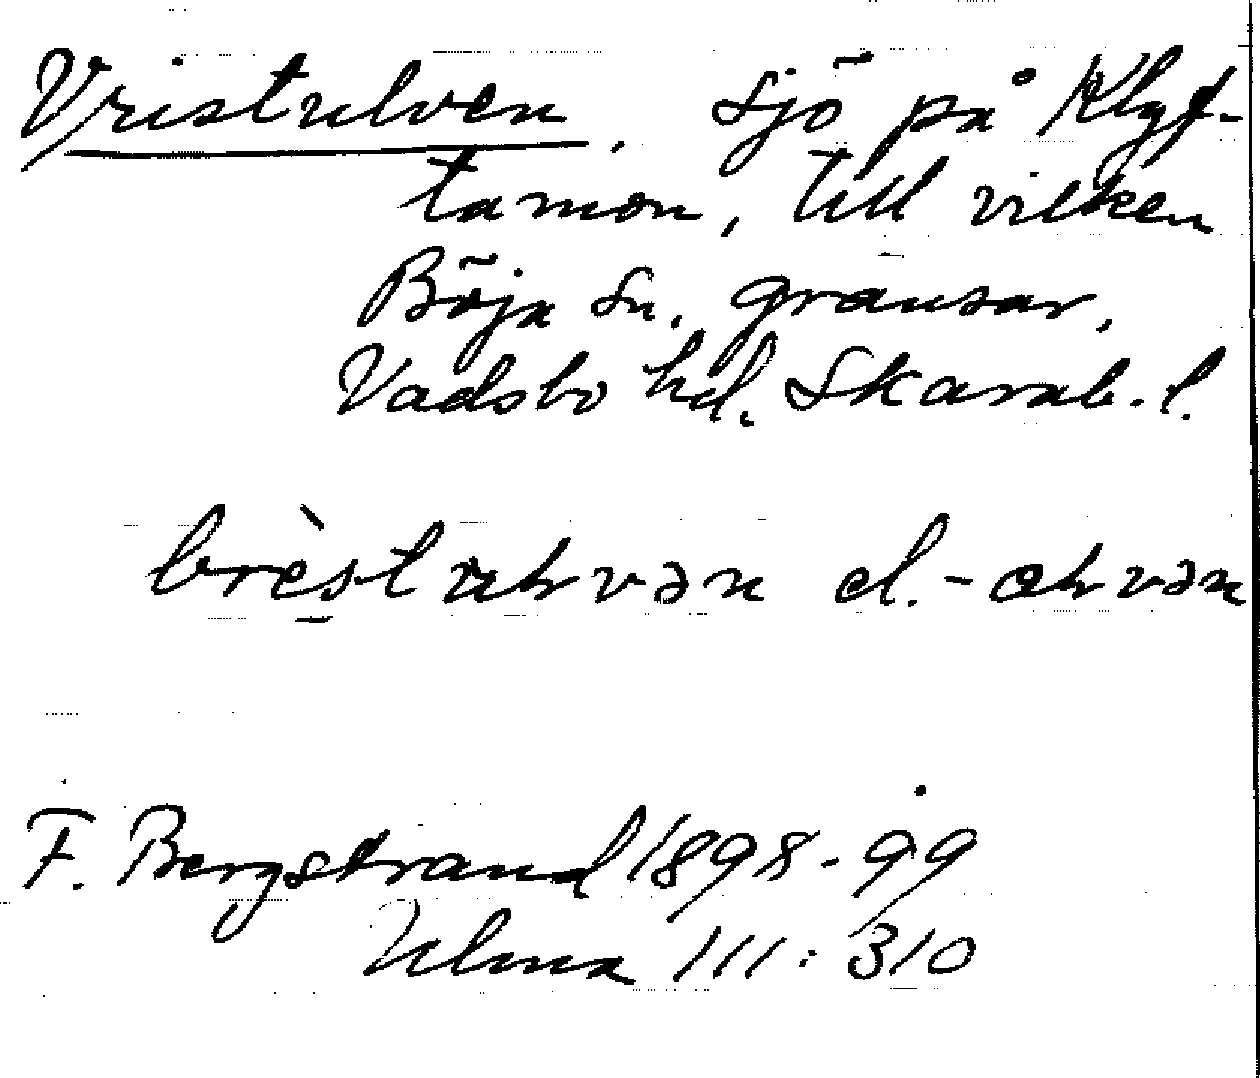 Vristulven. Sjö på Klyf-
tamon, till vilken
Böja sn. gränsar,
Vadsbo hd. Skarab. l.
el.
F. Bergstrand 1898-99
Ulma 111:310